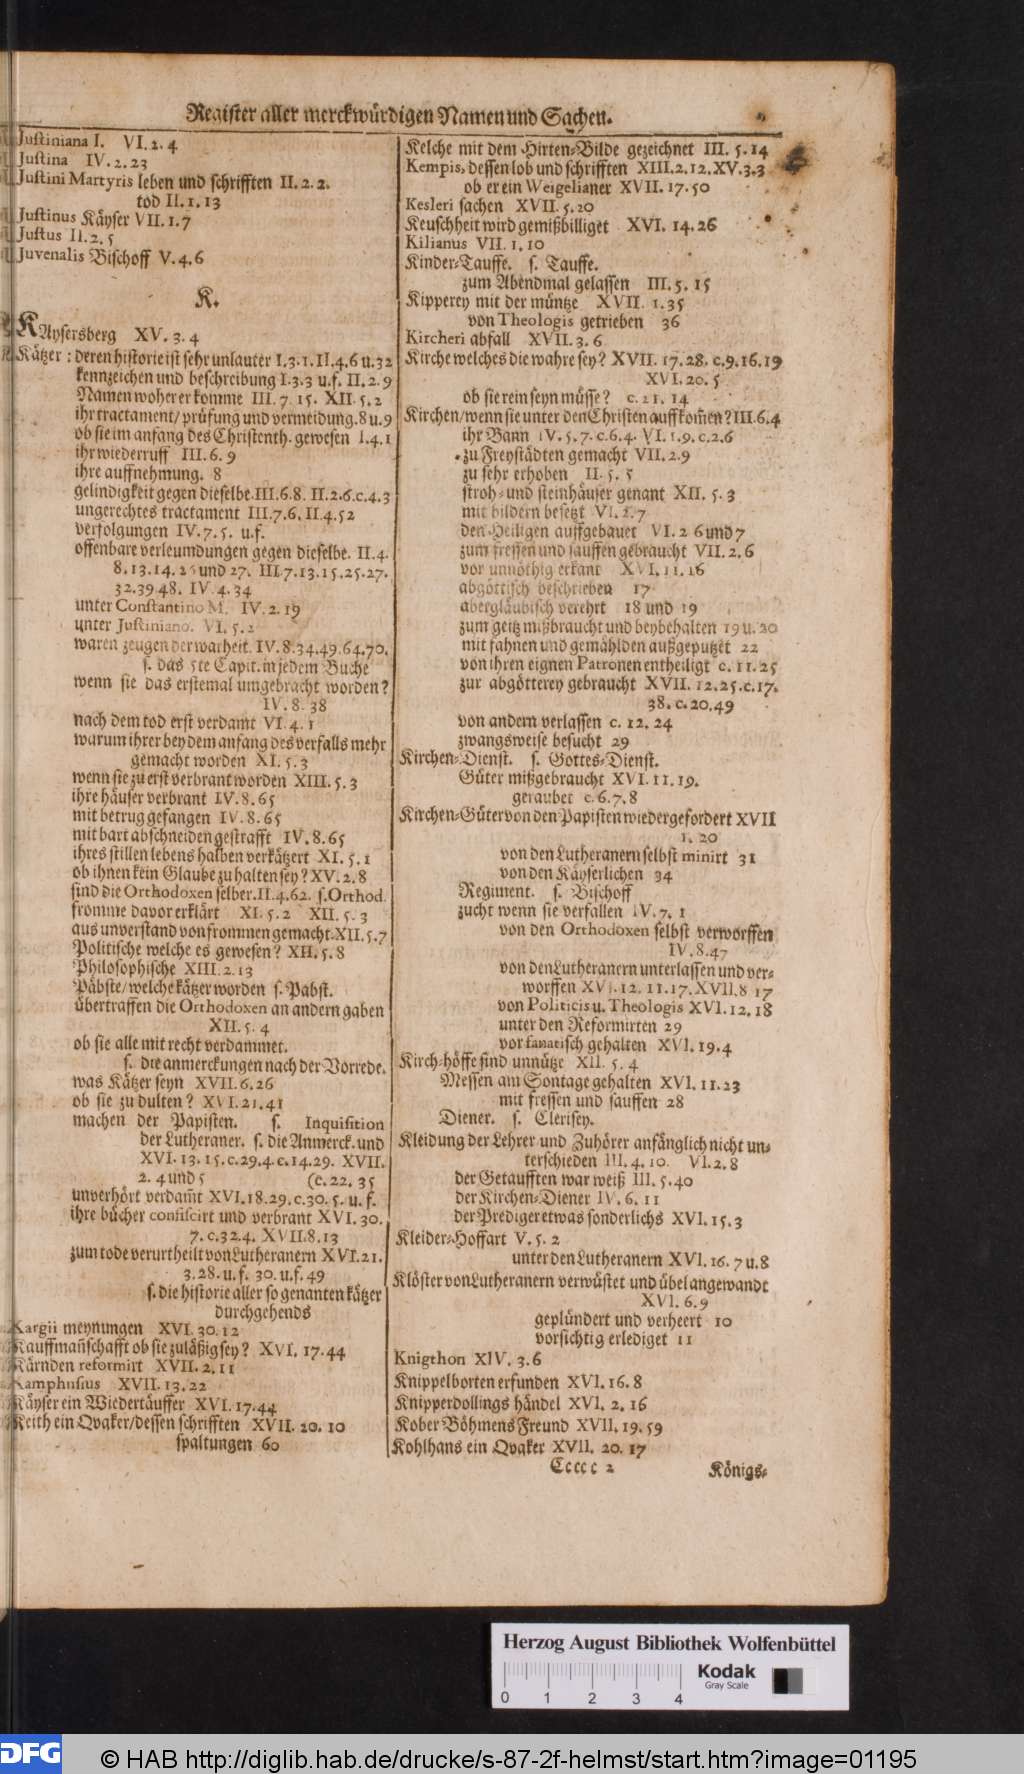 Register aller merckwürdigen Namen und Sachen.
Justiniana I. VI. 2. 4
Justina IV. 2. 23
Justini Martyris leben und schrifften II. 2. 2.
tod II. 1. 13
Justinus Käyser VII. 1. 7
Justus II. 2. 5
Juvenalis Bischoff V. 4. 6
K.
KAysersberg XV. 3. 4
Kätzer: deren historie ist sehr unlauter I. 3. 1. II. 4. 6 u. 32
kennzeichen und beschreibung I. 3. 3 u. f. II. 2. 9
Namen woher er komme III. 7. 15. XII. 5. 2
ihr tractament/ prüfung und vermeidung. 8 u. 9
ob sie im anfang des Christenth. gewesen I. 4. 1
ihr wiederruff III. 6. 9
ihre auffnehmung. 8
gelindigkeit gegen dieselbe. III. 6. 8. II. 2. 6. c. 4. 3
ungerechtes tractament III. 7. 6. II. 4. 52
verfolgungen IV. 7. 5. u. f.
offenbare verleumdungen gegen dieselbe. II. 4.
8. 13. 14. 25 und 27. III. 7. 13. 15. 25. 27.
32. 39. 48. IV. 4. 34
unter Constantino M. IV. 2. 19
unter Justiniano. VI. 5. 2
waren zeugen der warheit. IV. 8. 34. 49. 64. 70.
s. das 5te Capit. in jedem Buche
wenn sie das erstemal umgebracht worden?
IV. 8. 38
nach dem tod erst verdamt VI. 4. 1
warum ihrer bey dem anfang des verfalls mehr
gemacht worden XI. 5. 3
wenn sie zu erst verbrant worden XIII. 5. 3
ihre häuser verbrant IV. 8. 65
mit betrug gefangen IV. 8. 65
mit bart abschneiden gestrafft IV. 8. 65
ihres stillen lebens halben verkätzert XI. 5. 1
ob ihnen kein Glaube zu halten sey? XV. 2. 8
sind die Orthodoxen selber. II. 4. 62. s. Orthod.
fromme davor erklärt XI. 5. 2 XII. 5. 3
aus unverstand von frommen gemacht. XII. 5. 7
Politische welche es gewesen? XII. 5. 8
Philosophische XIII. 2. 13
Päbste/ welche kätzer worden s. Pabst.
übertraffen die Orthodoxen an andern gaben
XII. 5. 4
ob sie alle mit recht verdammet.
s. die anmerckungen nach der Vorrede.
was Kätzer seyn XVII. 6. 26
ob sie zu dulten? XVI. 21. 41
machen der Papisten. s. Inquisition
der Lutheraner. s. die Anmerck. und
XVI. 13. 15. c. 29. 4. c. 14. 29. XVII.
2. 4 und 5 (c. 22. 35
unverhört verdam̄t XVI. 18. 29. c. 30. 5. u. f.
ihre bücher confiscirt und verbrant XVI. 30.
7. c. 32. 4. XVII. 8. 13
zum tode verurtheilt von Lutheranern XVI. 21.
3. 28. u. f. 30. u. f. 49
s. die historie aller so genanten kätzer
durchgehends
Kargii meynungen XVI. 30. 12
Kauffman̄schafft ob sie zuläßig sey? XVI. 17. 44
Kärnden reformirt XVII. 2. 11
Kamphusius XVII. 13. 22
Käyser ein Wiedertäuffer XVI. 17. 44
Keith ein Qvaker/ dessen schrifften XVII. 20. 10
spaltungen 60
Kelche mit dem Hirten-Bilde gezeichnet III. 5. 14
Kempis, dessen lob und schrifften XIII. 2. 12. XV. 3. 3
ob er ein Weigelianer XVII. 17. 50
Kesleri sachen XVII. 5. 20
Keuschheit wird gemißbilliget XVI. 14. 26
Kilianus VII. 1. 10
Kinder-Tauffe. s. Tauffe.
zum Abendmal gelassen III. 5. 15
Kipperey mit der müntze XVII. 1. 35
von Theologis getrieben 36
Kircheri abfall XVII. 3. 6
Kirche welches die wahre sey? XVII. 17. 28. c. 9. 16. 19
XVI. 20. 5
ob sie rein seyn müsse? c. 21. 14
Kirchen/ wenn sie unter den Christen auffkom̄en? III. 6. 4
ihr Bann IV. 5. 7. c. 6. 4. VI. 1. 9. c. 2. 6
zu Freystädten gemacht VII. 2. 9
zu sehr erhoben II. 5. 5
stroh- und steinhäuser genant XII. 5. 3
mit bildern besetzt VI. 2. 7
den Heiligen auffgebauet VI. 2 6 und 7
zum fressen und sauffen gebraucht VII. 2. 6
vor unnöthig erkant XVI. 11. 16
abgöttisch beschrieben 17
abergläubisch verehrt 18 und 19
zum geitz mißbraucht und beybehalten 19 u. 20
mit fahnen und gemählden außgeputzet 22
von ihren eignen Patronen entheiligt c. 11. 25
zur abgötterey gebraucht XVII. 12. 25. c. 17.
38. c. 20. 49
von andern verlassen c. 12. 24
zwangsweise besucht 29
Kirchen-Dienst. s. Gottes-Dienst.
Güter mißgebraucht XVI. 11. 19.
geraubet c. 6. 7. 8
Kirchen-Güter von den Papisten wiedergefordert XVII
1. 20
von den Lutheranern selbst minirt 31
von den Käyserlichen 34
Regiment. s. Bischoff
zucht wenn sie verfallen IV. 7. 1
von den Orthodoxen selbst verworffen
IV. 8. 47
von den Lutheranern unterlassen und ver-
worffen XVI. 12. 11. 17. XVII. 8 17
von Politicis u. Theologis XVI. 12. 18
unter den Reformirten 29
vor fanatisch gehalten XVI. 19. 4
Kirch-höffe sind unnütze XII. 5. 4
Messen am Sontage gehalten XVI. 11. 23
mit fressen und sauffen 28
Diener. s. Clerisey.
Kleidung der Lehrer und Zuhörer anfänglich nicht un-
terschieden III. 4. 10. VI. 2. 8
der Getaufften war weiß III. 5. 40
der Kirchen-Diener IV. 6. 11
der Prediger etwas sonderlichs XVI. 15. 3
Kleider-Hoffart V. 5. 2
unter den Lutheranern XVI. 16. 7 u. 8
Klöster von Lutheranern verwüstet und übel angewandt
XVI. 6. 9
geplündert und verheert 10
vorsichtig erlediget 11
Knigthon XIV. 3. 6
Knippelborten erfunden XVI. 16. 8
Knipperdollings händel XVI. 2. 16
Kober Böhmens Freund XVII. 19. 59
Kohlhans ein Qvaker XVII. 20. 17
Ccccc 2 Königs-
Herzog August Bibliothek Wolfenbüttel
Kodak
Gray Scale
0 1 2 3 4
DFG © HAB http://diglib.hab.de/drucke/s-87-2f-helmst/start.htm?image=01195